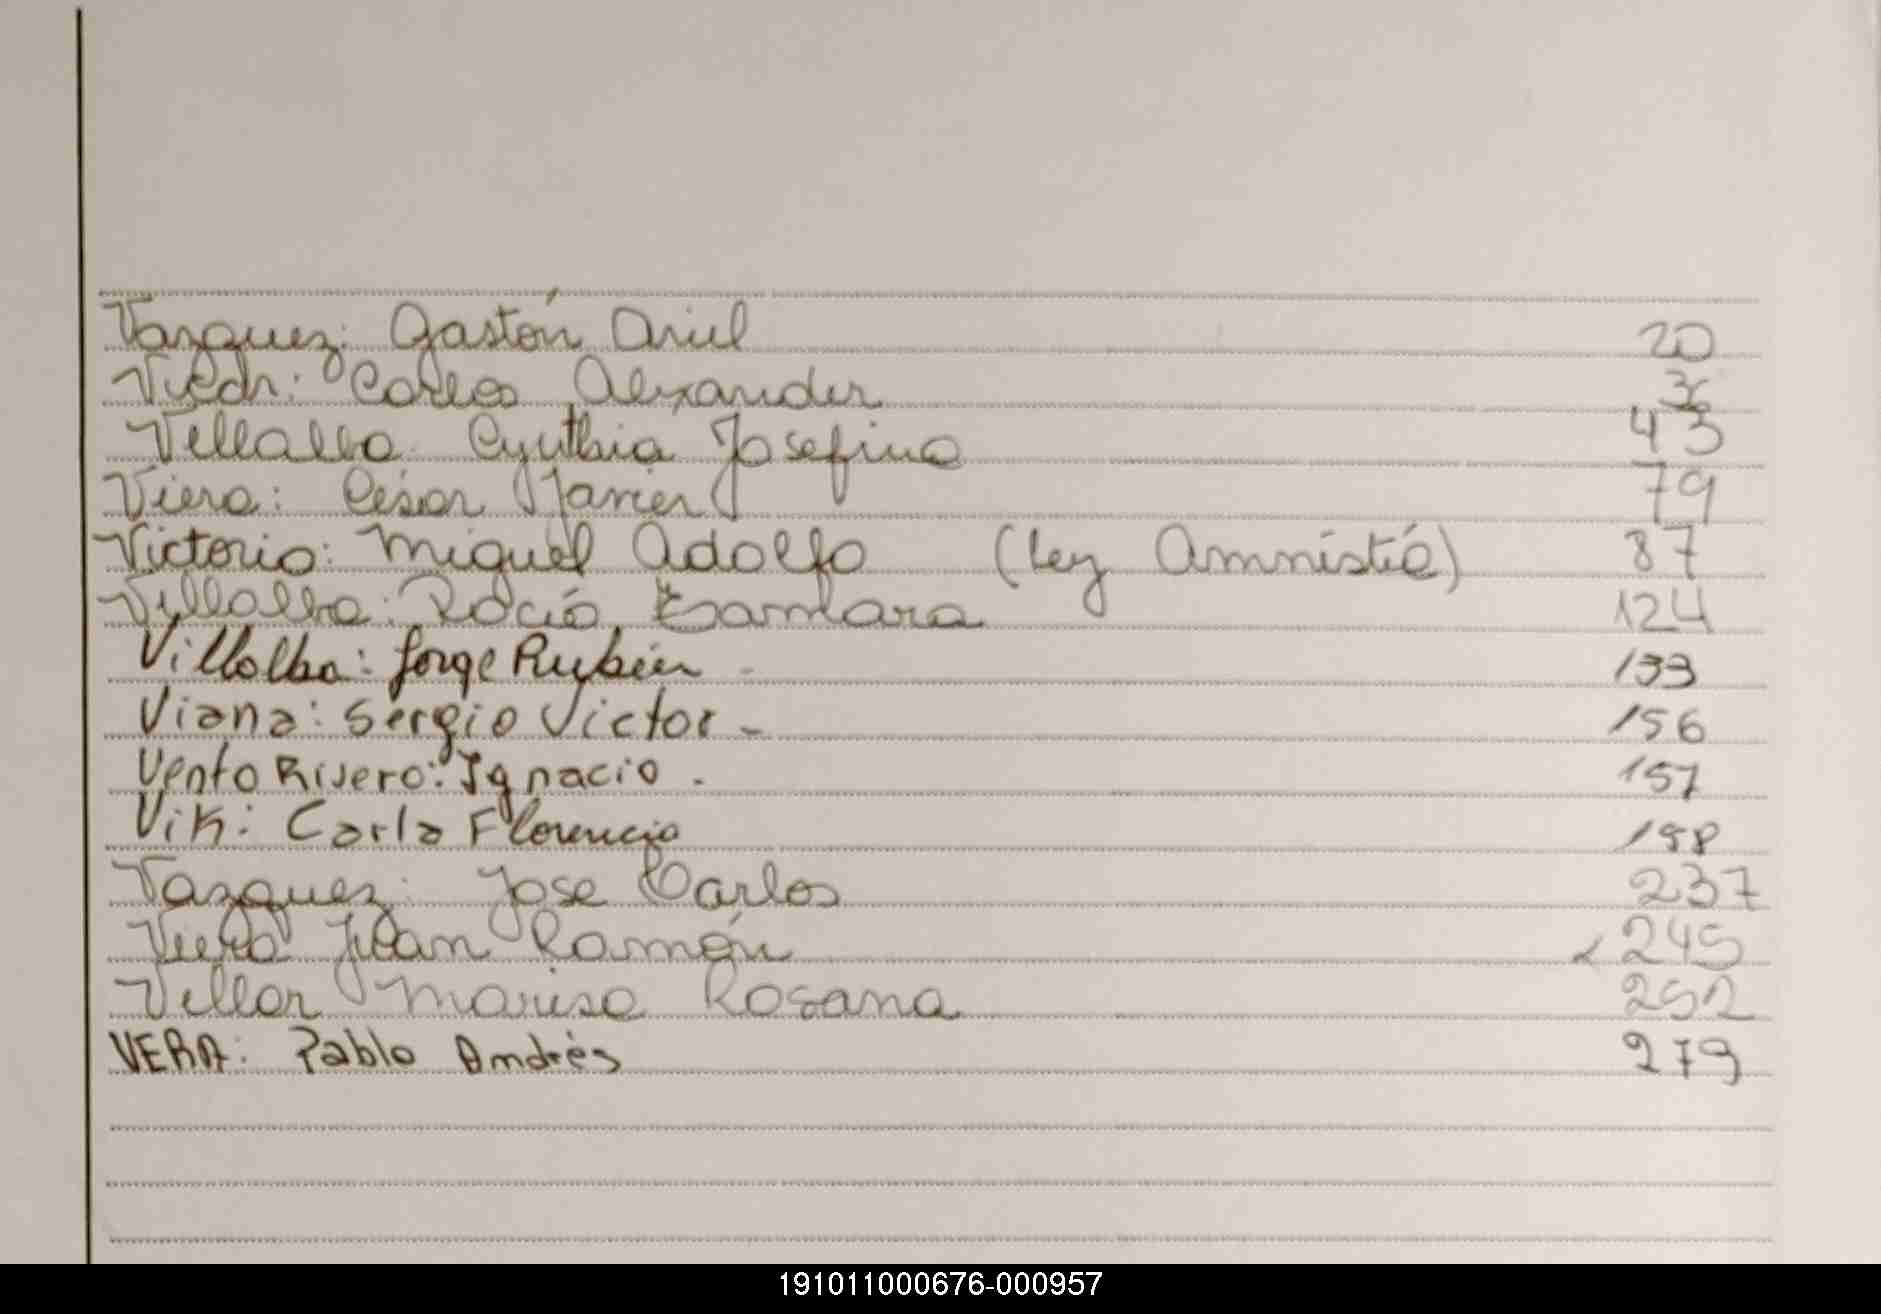 Vazquez: Gastón Ariel 20
Carlos Alexander 36
Villalba Cynthia Josefina 43
Viera: César Javier 79
Victorio: Miguel Adolfo (Ley Amnistía) 87
Villalba: Rocío Tamara 124
Villalba: Jorge Rubén 133
Viana: Sergio Victor - 156
Vento Rivero: Ignacio . 157
Vik: Carla Florencia 198
Vazquez: Jose Carlos 237
Juan Ramón 245
Villar Marisa Rosana 252
VERA: Pablo Andrés 279
191011000676-000957